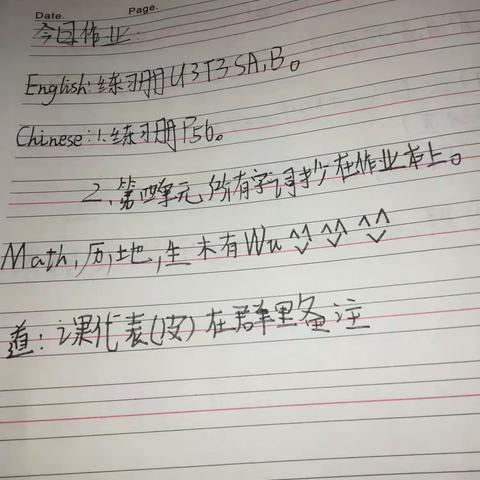 Date. Page.
今日作业:
English:练习册U3T3SA,B。
Chinese:1.练习册P56。
2,第四单元所有字词抄在作业本上。
Math,历,地,生 未有Wu
道:课代表(皮)在群里备注